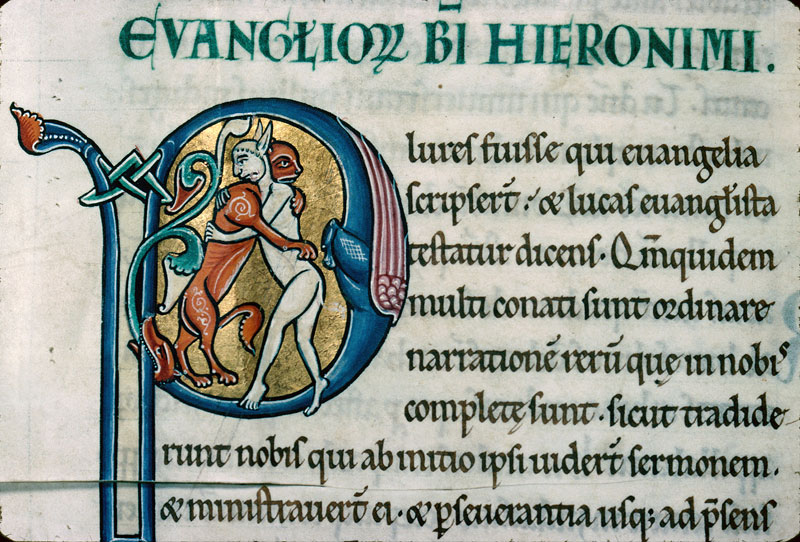 EVANGLIOꝜ BI̅ HIERONIMI.
Plures fuisse qui euangelia
scripser̅t. & lucas euangl̅ista
testatur dicens. Qm̅ quidem
multi conati sunt ordinare
narratione̅ reru̅ quę in nobis
completę sunt. sicut tradide
runt nobis qui ab initio ipsi uider̅t sermonem.
& ministrauer̅t ei. & ꝑseuerantia usq; ad p̅sens